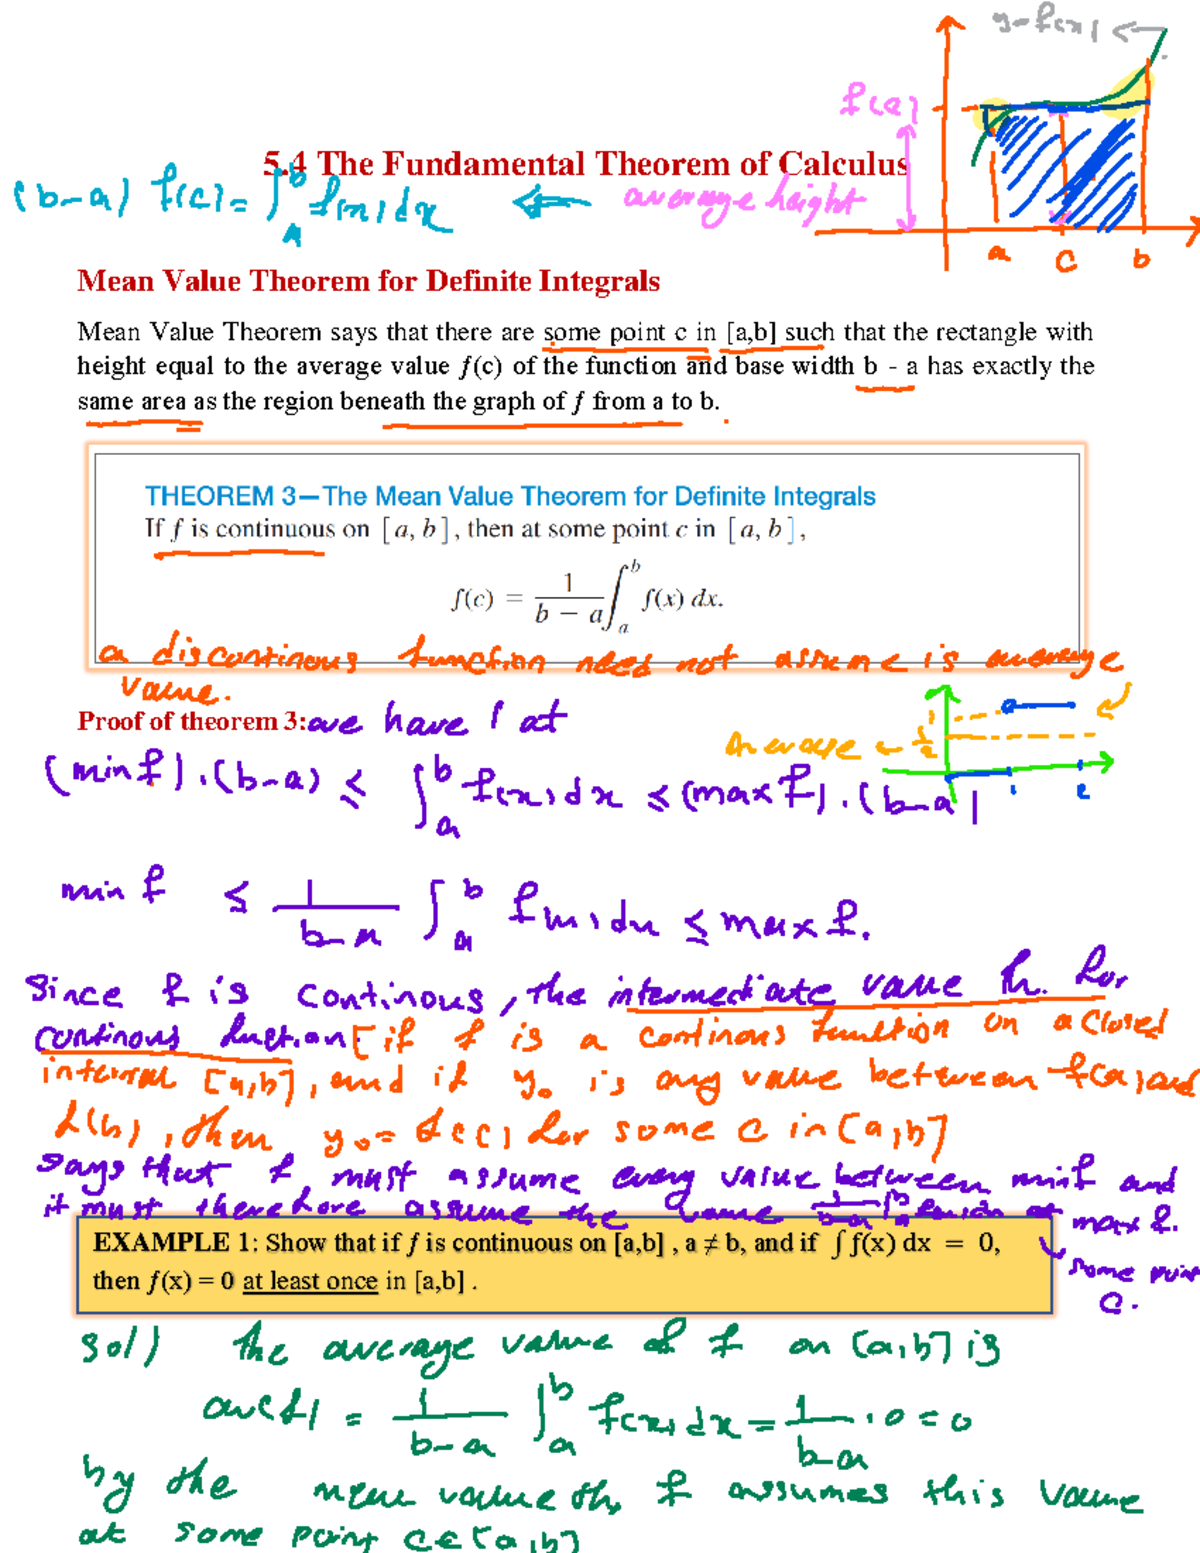 y=f(x)
f(a)
5.4 The Fundamental Theorem of Calculus
(b-a) f(c) = ∫_a^b f(x) dx ⇐ average height
a c b
Mean Value Theorem for Definite Integrals
Mean Value Theorem says that there are some point c in [a,b] such that the rectangle with
height equal to the average value f(c) of the function and base width b - a has exactly the
same area as the region beneath the graph of f from a to b.
THEOREM 3—The Mean Value Theorem for Definite Integrals
If f is continuous on [a, b], then at some point c in [a, b],
f(c) = 1/(b − a) ∫_a^b f(x) dx.
a discontinous function need not assume is average
value.
Proof of theorem 3: we have that
average = 1/2
1
1 2
(min f).(b-a) ≤ ∫_a^b f(x) dx ≤ (max f).(b-a)
min f ≤ 1/(b-a) ∫_a^b f(x) dx ≤ max f.
Since f is continous, the intermediate value th. for
continous function [if f is a continous function on a closed
interval [a,b], and if y₀ is any value between f(a) and
f(b), then y₀ = f(c) for some c in [a,b]
says that f must assume every value between min f and
max f.
it must therefore assume the value 1/(b-a) ∫_a^b f(x) dx at
some point
c.
EXAMPLE 1: Show that if f is continuous on [a,b] , a ≠ b, and if ∫ f(x) dx = 0,
then f(x) = 0 at least once in [a,b] .
sol) the average value of f on [a,b] is
av(f) = 1/(b-a) ∫_a^b f(x) dx = 1/(b-a) . 0 = 0
by the mean value th, f assumes this value
at some point c∈[a,b]